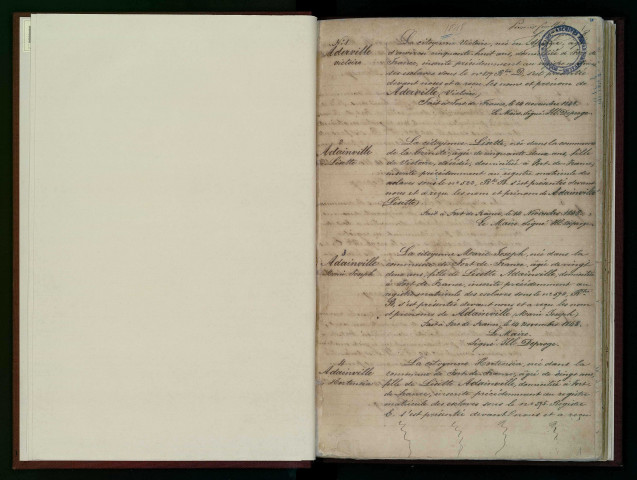 1848
N° 1
Aderville
Victoire
La citoyenne Victoire, née en
cinquante huit ans, domiciliée à Fort de
France, inscrite précédemment au
des esclaves sous le n° 179 s'est présentée
devant nous et a reçu les noms et prénoms de
Aderville, Victoire
Fait à Fort de France, le 12 novembre 1848.
Le Maire signé Ul. Deproge
2
Adainville
Lisette
La citoyenne Lisette, née dans la commune
de la Trinité, âgée de cinquante deux ans, fille
de Victoire, décédée, domiciliée à Fort de France,
inscrite précédemment au registre matricule des
esclaves sous le n° s'est présentée devant
nous et a reçu les nom et prénom de Adainville
Lisette
Fait à Fort de France, le 12 Novembre 1848
Le Maire Signé Ul. Deproge
3
Adainville
Marie Joseph
La citoyenne Marie Joseph, née dans la
commune de Fort de France, âgée de vingt
deux ans, fille de Lisette Adainville, domiciliée
à Fort de France, inscrite précédemment au
registre matricule des esclaves sous le n°
s'est présentée devant nous et a reçu les nom
et prénoms de Adainville, Marie Joseph
Fait à Fort de France, le 12 novembre 1848
Le Maire
Signé Ul. Deproge
4
Adainville
Hortensia
La citoyenne Hortensia, née dans la
commune de Fort-de-France, âgée de vingt ans,
fille de Lisette Adainville, domiciliée à Fort-
de-France, inscrite précédemment au registre
matricule des esclaves sous le n° Registre
E. s'est présentée devant nous et a reçu